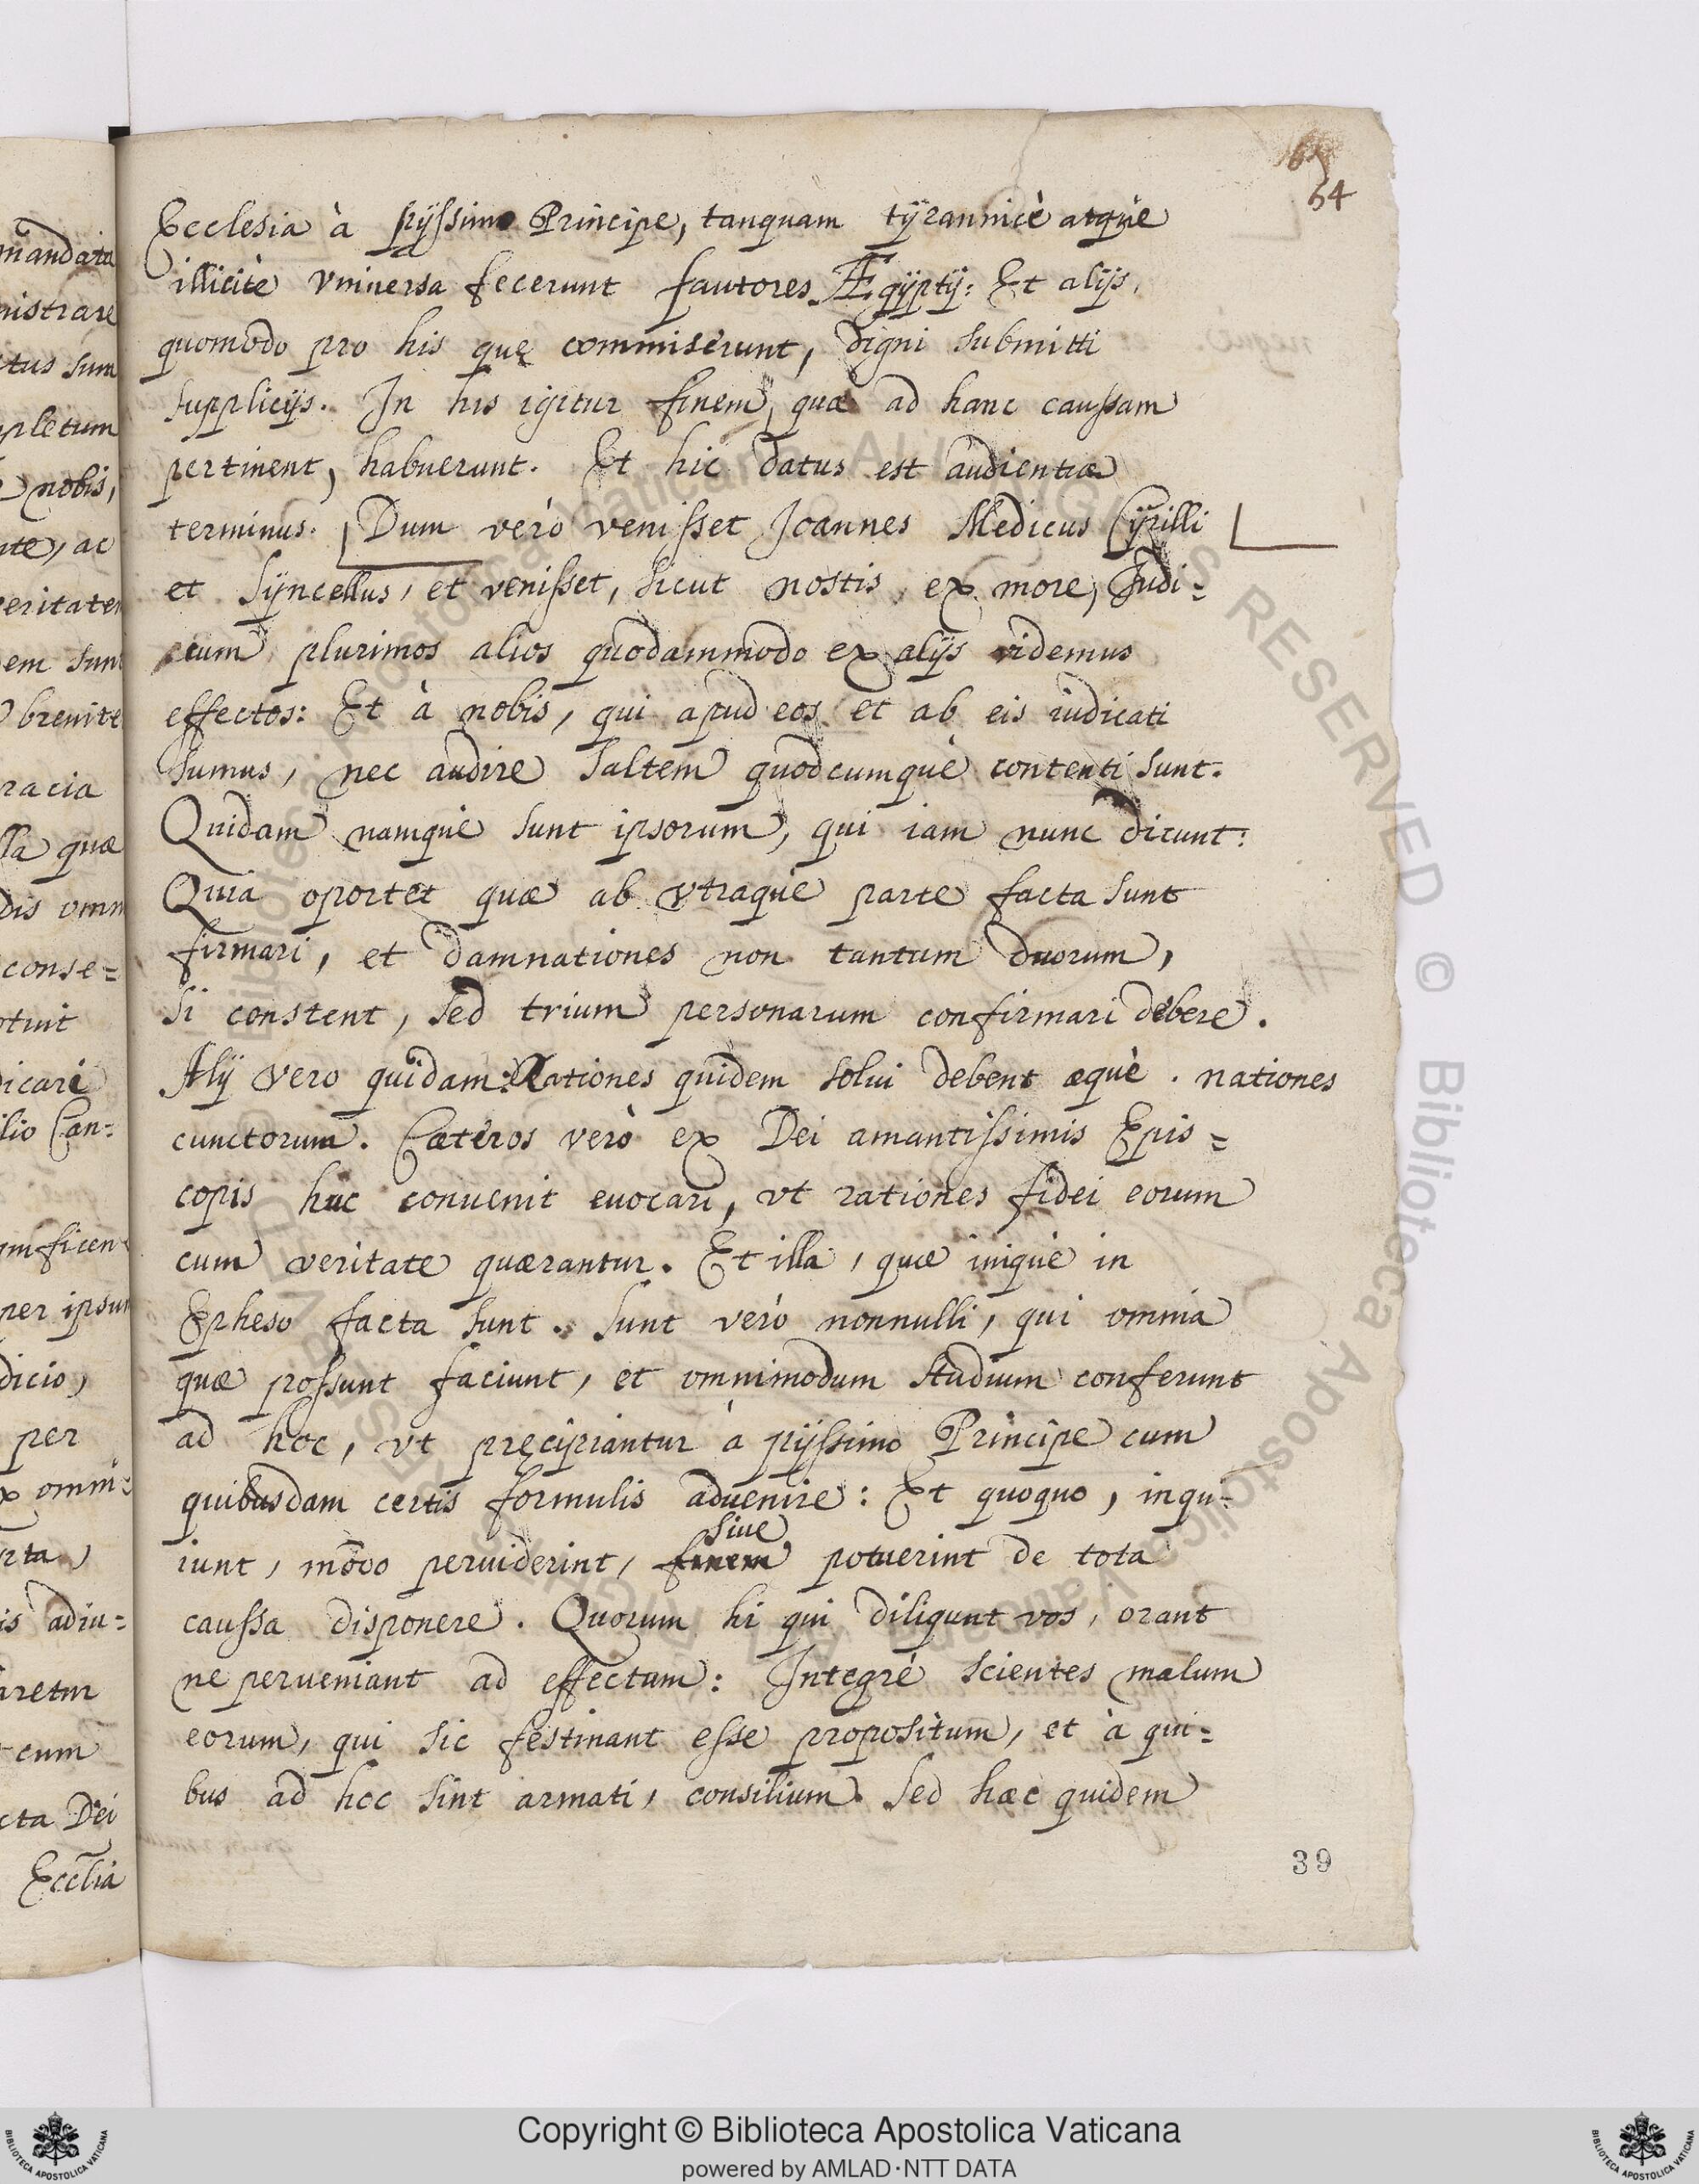 64
Ecclesia à pijssimo Principe, tanquam tÿrannicè atque
illicitè vniuersa fecerunt fautores Ægÿptij: Et alijs,
quomodo pro his quę commiserunt, digni submitti
supplicijs. In his igitur finem, quæ ad hanc caussam
pertinent, habuerunt. Et hic datus est audientiæ
terminus. Dum verò venisset Joannes Medicus Cÿrilli
et Sÿncellus, et venisset, sicut nostis, ex more, Judi=
cum plurimos alios quodammodo ex alijs videmus
effectos: Et à nobis, qui apud eos et ab eis iudicati
sumus, nec audire saltem quodcumquè contenti sunt.
Quidam namque sunt ipsorum, qui iam nunc dicunt:
Quia oportet quæ ab vtraque parte facta sunt
firmari, et damnationes non tantum duorum,
si constent, sed trium personarum confirmari debere.
Alij vero quidam: nationes quidem solui debent æquè . nationes
cunctorum. Cæteros verò ex Dei amantissimis Epis=
copis huc conuenit euocari, vt rationes fidei eorum
cum veritate quærantur. Et illa, quæ iniquè in
Epheso facta sunt. Sunt verò nonnulli, qui omnia
quæ possunt faciunt, et omnimodum studium conferunt
ad hoc, vt pręcipiantur à pijssimo Principe cum
quibusdam certis formulis aduenire: Et quoquo, inqu=
sive
iunt, modo peruiderint, finem potuerint de tota
caussa disponere. Quorum hi qui diligunt vos, orant
ne perueniant ad effectum: Integrè scientes malum
eorum, qui sic festinant esse propositum, et à qui=
bus ad hoc sint armati, consilium. Sed hæc quidem
39
mandata
nistrare
tus sum
pletum
nobis,
nte, ac
veritatem
em sunt
breuite
racia
lla quæ
dis omn
conse=
otuit
dicari
ilio Can=
gnificen
per ipsum
dicio,
per
omni=
rta,
is adiu=
aretur
cum
cta Dei
Ecclia
Copyright © Biblioteca Apostolica Vaticana
powered by AMLAD·NTT DATA
BIBLIOTECA APOSTOLICA VATICANA
BIBLIOTECA APOSTOLICA VATICANA